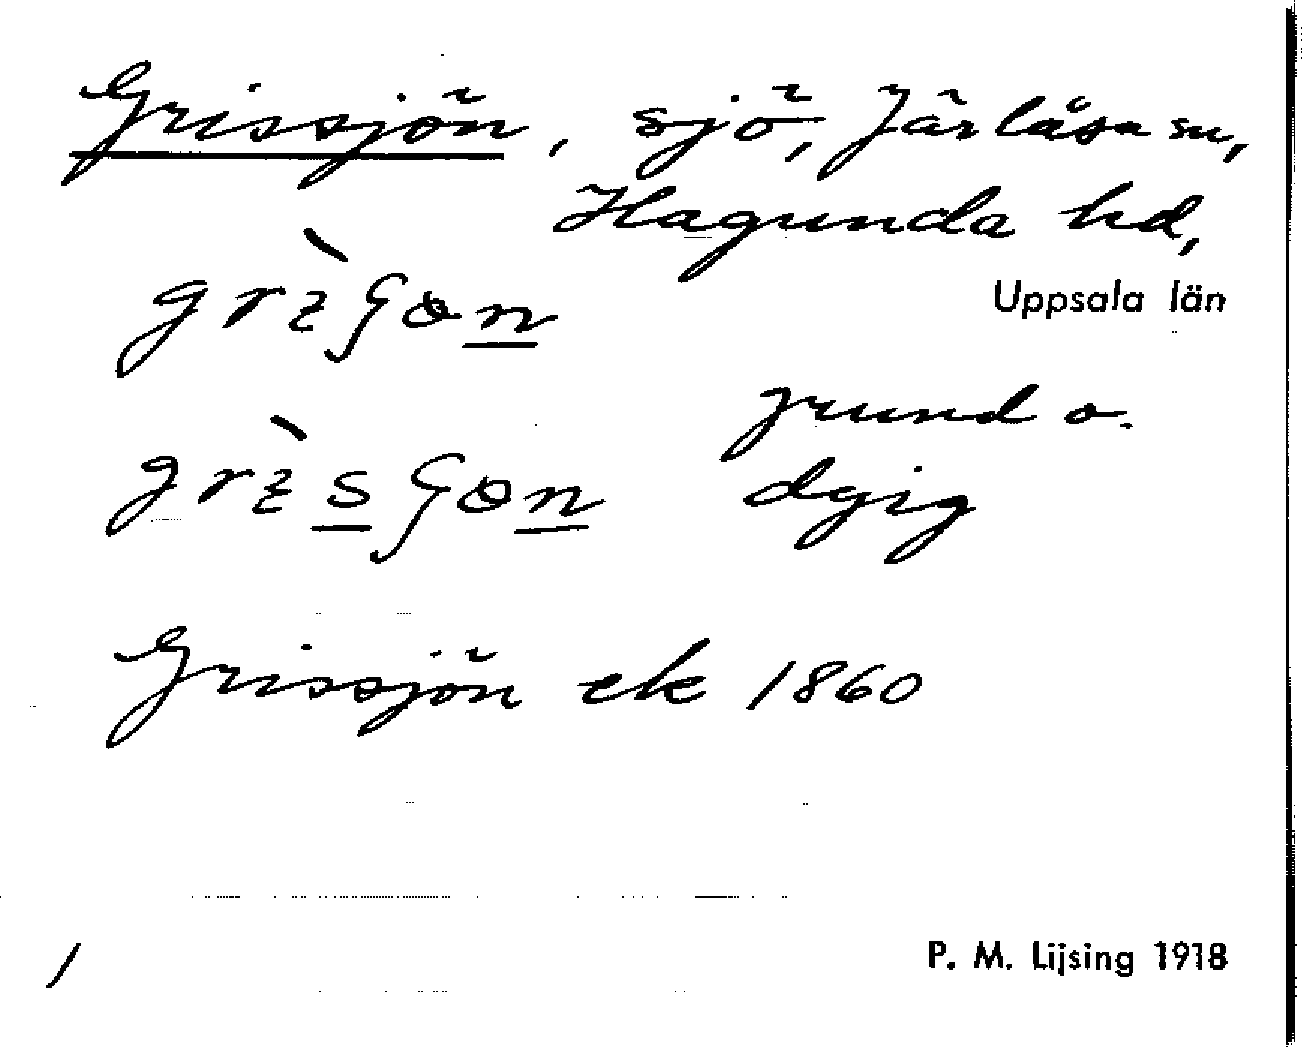 Grissjön, sjö, Järlåsa sn,
Hagunda hd,
Uppsala län
grund o.
dyig
Grissjön ek 1860
/
P. M. Lijsing 1918